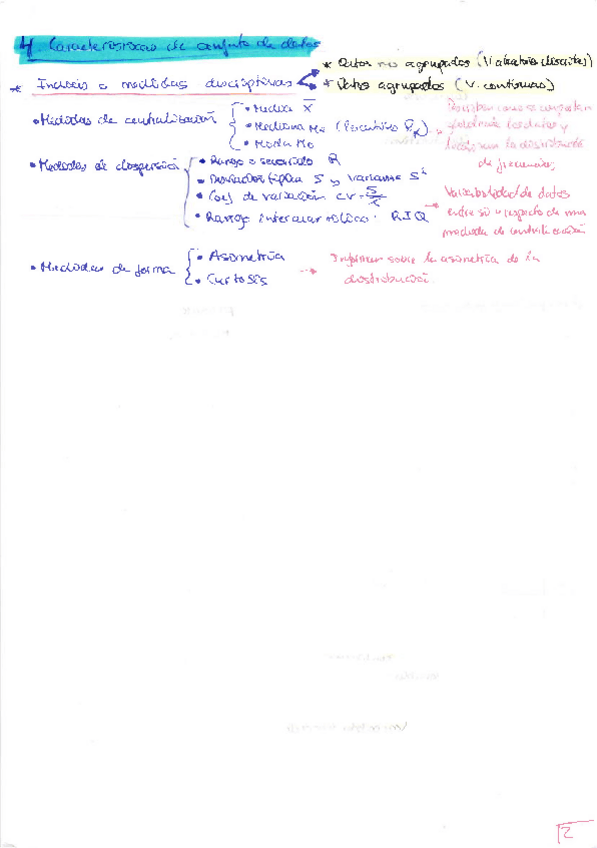 4. Características de conjunto de datos
* Índices o medidas descriptivas
* Datos no agrupados (Variable discretas)
* Datos agrupados (V. continuas)
• Medidas de centralización
• Media X̄
• Mediana Me (Percentiles Pk)
• Moda Mo
→ Describen como se comportan globalmente los datos y
la distribución
de frecuencias
• Medidas de dispersión
• Rango o recorrido R
• Desviación típica S y Varianza S²
• Coef de variación CV = S/X̄
• Rango intercuartílico: RIQ
→ Variabilidad de datos
entre sí o respecto de una
medida de centralización
• Medidas de forma
• Asimetría
• Curtosis
→ Informan sobre la asimetría de la
distribución
2